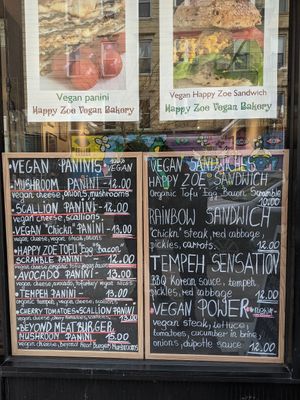 Vegan panini
Happy Zoe Vegan Bakery
Vegan Happy Zoe Sandwich
Happy Zoe Vegan Bakery
VEGAN PANINIS
MUSHROOM PANINI - 12.00
vegan cheese, onions, mushrooms
SCALLION PANINI - 12.00
vegan cheese, scallions
VEGAN "Chickn" PANINI - 13.00
vegan cheese, vegan
HAPPY ZOE TOFU "Egg "Bacon"
SCRAMBLE PANINI - 12.00
AVOCADO PANINI - 13.00
TEMPEH PANINI - 13.00
CHERRY TOMATOES & SCALLION PANINI
13.00
BEYOND MEAT BURGER
MUSHROOM PANINI - 15.00
vegan cheese, Beyond Meat Burger, Mushrooms
VEGAN SANDWICHES
HAPPY ZOE SANDWICH
Organic Tofu Egg Bacon Scramble
RAINBOW SANDWICH
Chickn' steak, red cabbage,
pickles, carrots. 12.00
TEMPEH SENSATION
BBQ Korean sauce, tempeh
pickles, red cabbage 12.00
VEGAN POWER
vegan steak, lettuce,
tomatoes, cucumber in brine,
onions, chipotle sauce 12.00